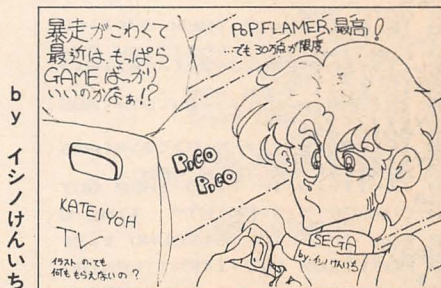 暴走がこわくて
最近は、もっぱら
GAMEばっかり
いいのかなぁ!?
POPFLAMER・最高!
…でも30万点が限度
PiCO
PiCO
KATEIYOH
TV
イラスト のっても
何ももらえないの?
SEGA
by.イシノけんいち
by イシノけんいち